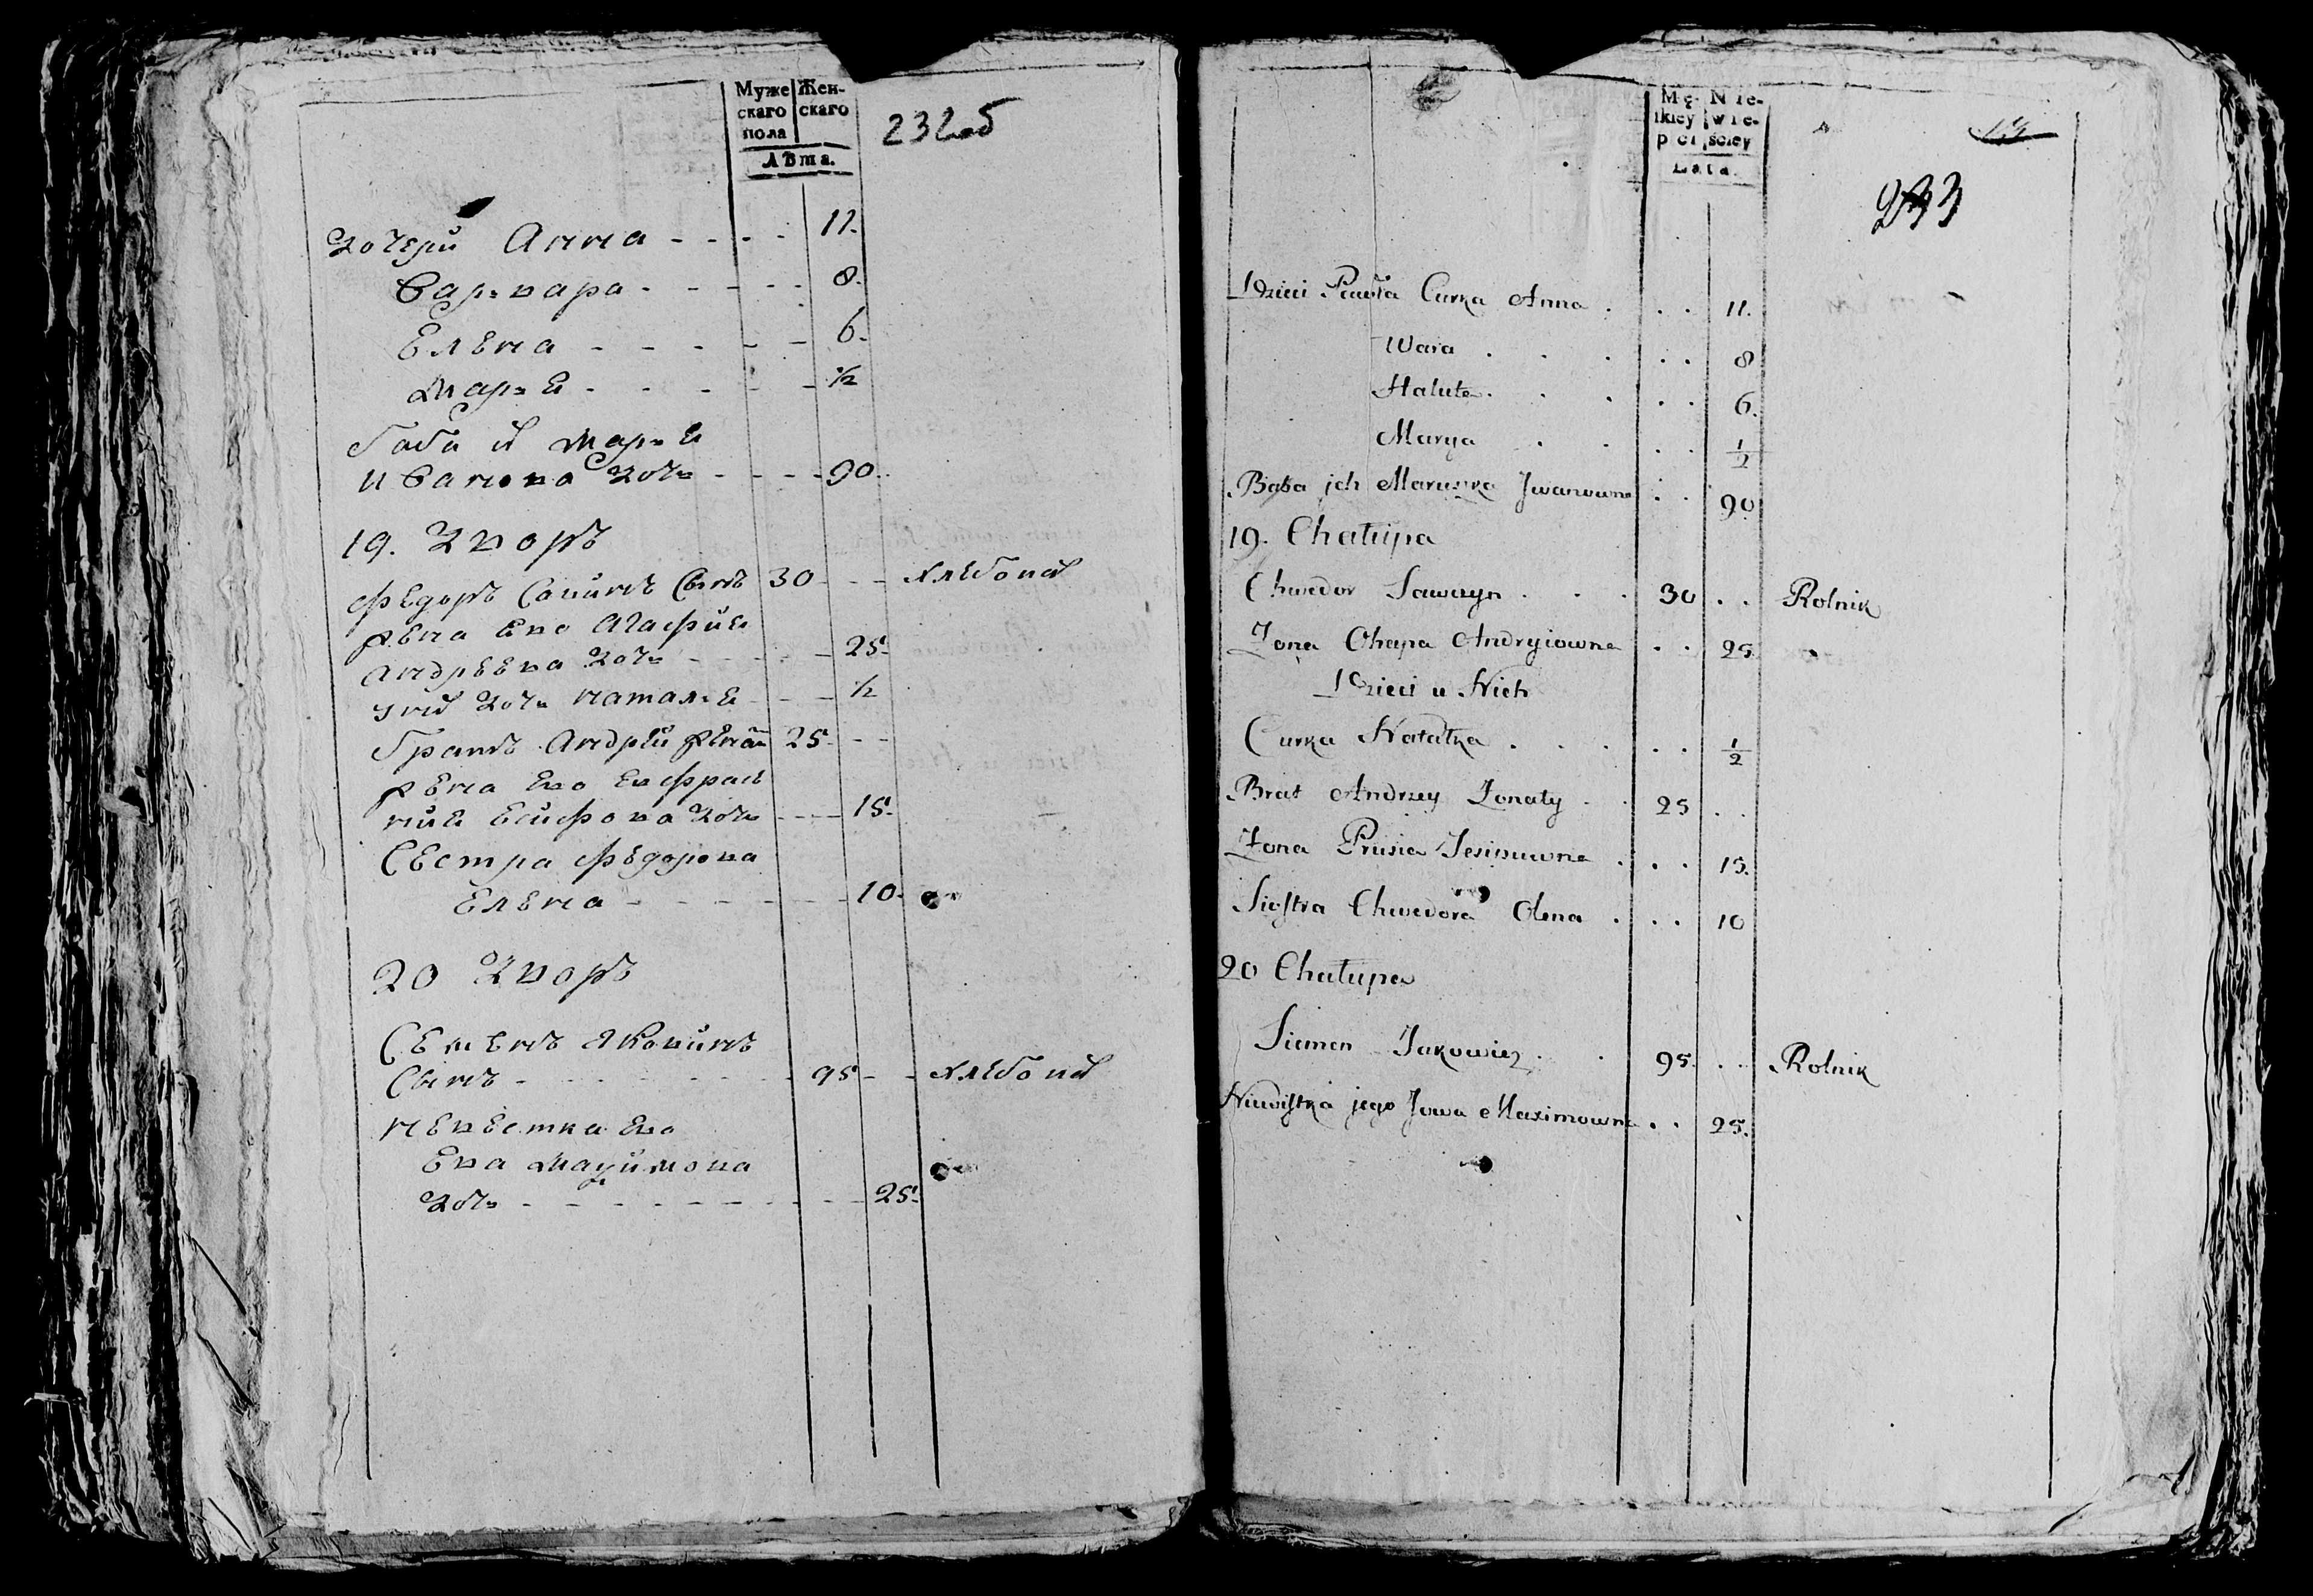 Муже
скаго
пола
Жен-
скаго
Лѣта.
232об
дочери Анна - - - - 11.
Варъвара - - - - - 8.
Елена - - - - - 6.
Маръя - - - - - - ½
баба их Маръя
Иванова дочь - - - - 90.
19. Дворъ
Федоръ Савинъ Сынъ 30 - - - хлѣбопа
жена ево Агафия
Андреева дочь - - - - - 25.
у них дочь Наталья - - - ½
братъ Андрей женат 25. - -
жена ево Евфраси
ния Есифова дочь - - - - 15.
Сестра Федорова
Елена - - - - - - - 10.
20 Дворъ
Семенъ Яковинъ
Сынъ - - - - - - - 95 - - хлѣбопа
невестка ево
Ева Мацимова
дочь - - - - - - - - 25.
Mę-
skiey
płci
Nie-
wie-
ściey
Lata.
14
233
Dzieci Pawła Curka Anna . . . 11.
Wara . . . . . 8
Halutę . . . . . 6.
Marya . . . . ½
Baba ich Maruszka Jwanowna . . 90
19. Chałupa
Chwedor Sawczyn . . . 30 . . Rolnik
Żona Ohapa Andryiowna . . 25.
Dzieci u Nich
Curka Natałka . . . . . ½
Brat Andrzey Żonaty . . 25 . .
Żona Prusia Jesipuwna . . . 15.
Siostra Chwedora Olena . . . 10
20 Chałupa
Siemen Jakowicz . . 95. . . Rolnik
Niewistka jego Jowa Maximowna . . 25.